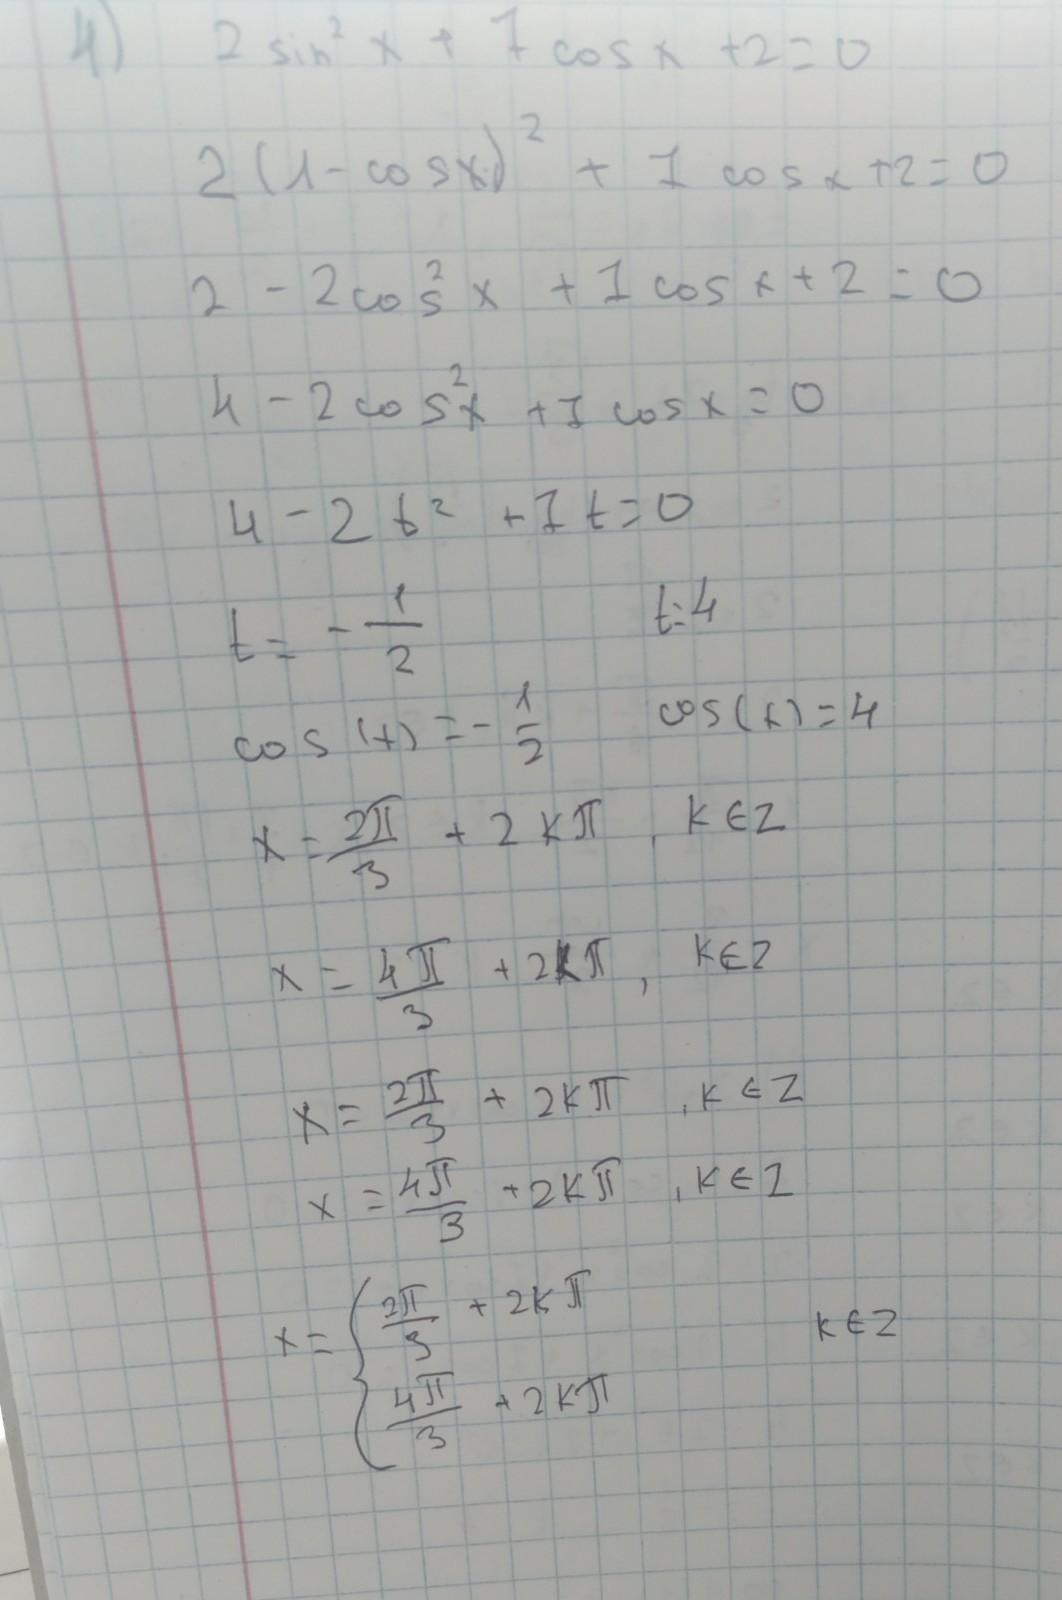 4) 2 sin² x + 7 cos x + 2 = 0
2 (1 - cos x)² + 7 cos x + 2 = 0
2 - 2 cos² x + 7 cos x + 2 = 0
4 - 2 cos² x + 7 cos x = 0
4 - 2 t² + 7 t = 0
t = - 1/2 t = 4
cos (x) = - 1/2 cos (x) = 4
x = 2π/3 + 2kπ , k ∈ Z
x = 4π/3 + 2kπ , k ∈ Z
x = 2π/3 + 2kπ , k ∈ Z
x = 4π/3 + 2kπ , k ∈ Z
x = { 2π/3 + 2kπ k ∈ Z
4π/3 + 2kπ